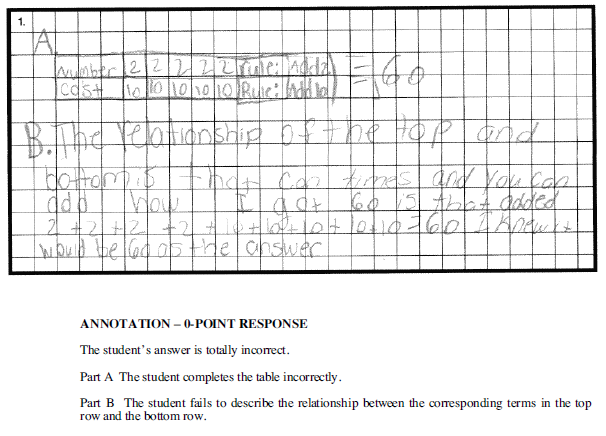 1.
A.
Number 2 2 2 2 2 Rule: Add 2
Cost 10 10 10 10 10 Rule: Add 10 = 60
B. The relationship of the top and
bottom is that can times and you can
add how I got 60 is that added
2 +2 +2 +2 +10+10+10+10+10=60 I knew it
would be 60 as the answer
ANNOTATION – 0-POINT RESPONSE
The student's answer is totally incorrect.
Part A The student completes the table incorrectly.
Part B The student fails to describe the relationship between the corresponding terms in the top
row and the bottom row.